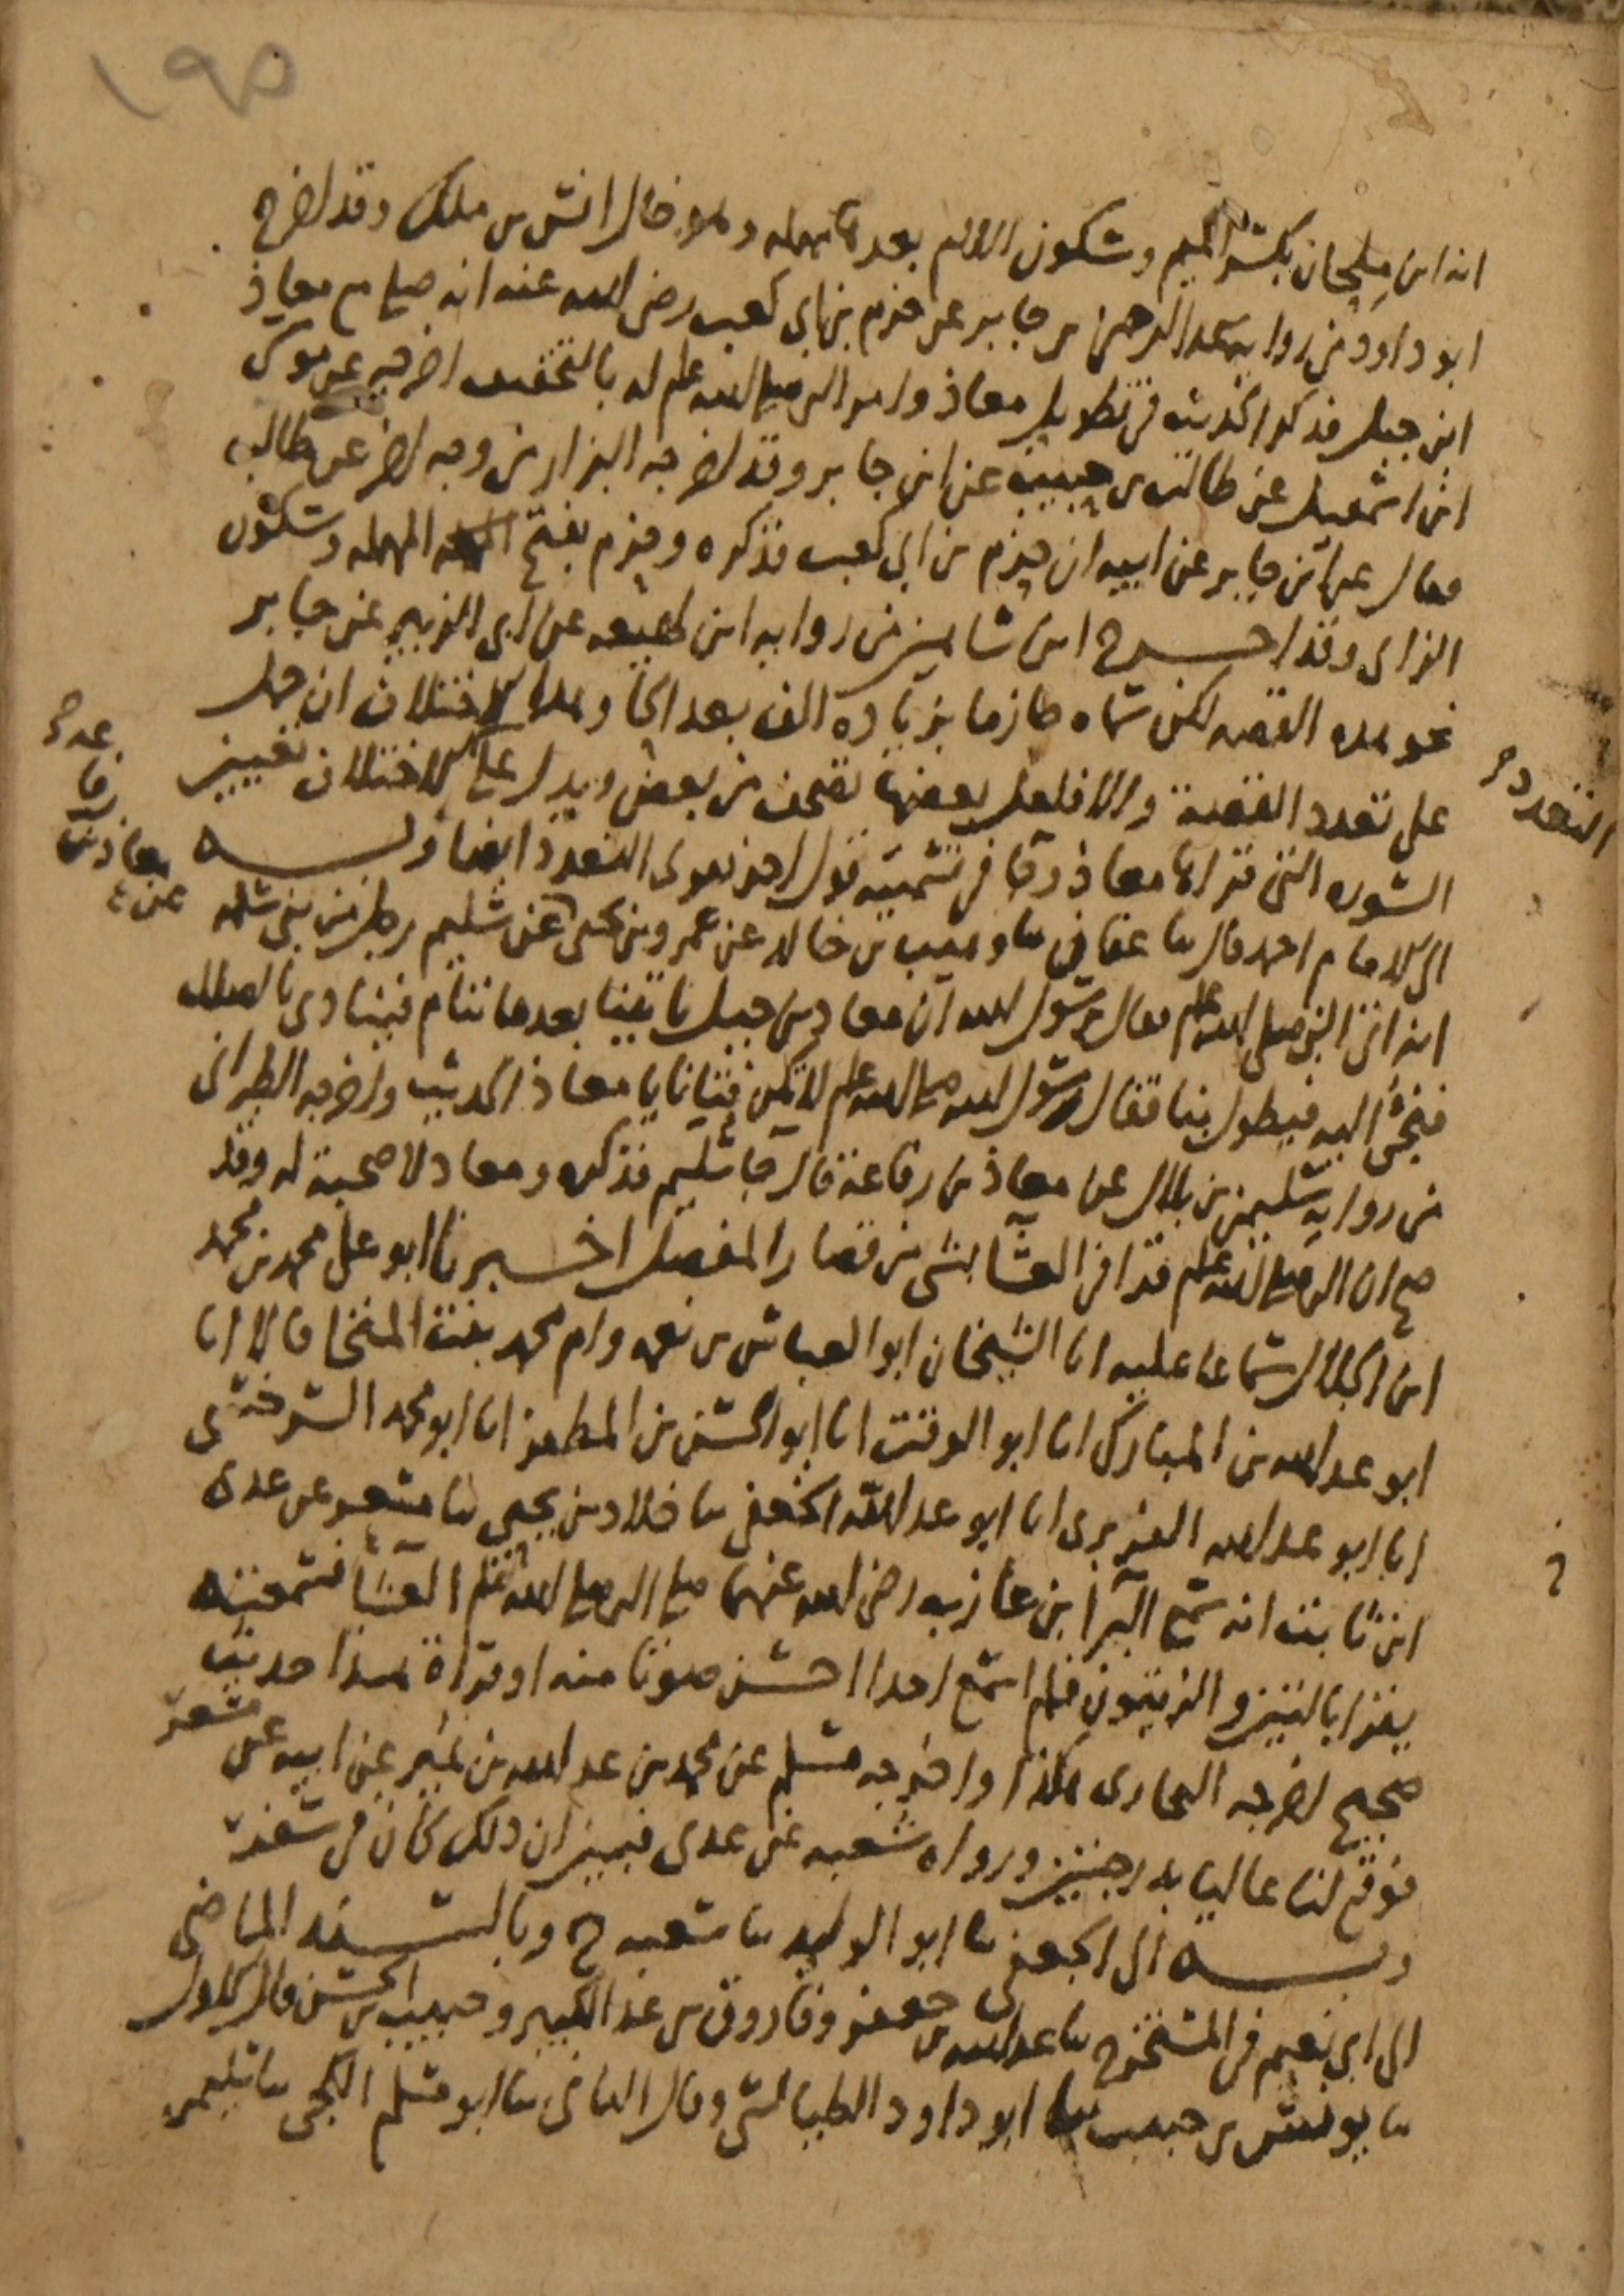 ١٩٥
انه ابن مِلحان بكسر الميم وسكون اللام بعدها مهملة وهو خال انس بن ملك وقد اخرج
ابو داود من رواية عبد الرحمن بن جابر عن حزم بن ابي كعب رضي الله عنه انه صلى مع معاذ
ابن جبل فذكر الحديث في تطويل معاذ وامر النبي صلى الله عليه وسلم له بالتخفيف اخرجه عن موسى
ابن اسمعيل عن طالب بن حبيب عن ابن جابر وقد اخرجه البزار من وجه اخر عن طالب
فقال عن ابن جابر عن ابيه ان حزم بن ابي كعب فذكره وحزم بفتح المهملة وسكون
الزاي وقد اخرج ابن شاهين من رواية ابن لهيعة عن ابي الزبير عن جابر
نحو هذه القصة لكن سماه حازما بزيادة الف بعد الحا وهذا الاختلاف ان حمل
على تعدد القصة والا فلعل بعضها تصحف من بعض ويدل على الاختلاف تعيين
التعدد
السورة التي قراها معاذ وجا في تسميته قول اخر يقوي التعدد ايضا وبه
الى الامام احمد قال ثنا عفان ثنا وهيب بن خالد عن عمرو بن يحيى عن سليم رجل من بني سلمة
معاذ بن رفاعة عن
انه اتى النبي صلى الله عليه وسلم فقال يا رسول الله ان معاذ بن جبل ياتينا بعدما ننام فينادي بالصلاة
فنجئ اليه فيطول بنا فقال رسول الله صلى الله عليه وسلم لا تكن فتانا يا معاذ الحديث واخرجه الطبراني
من رواية سليمن بن بلال عن معاذ بن رفاعة قال جا سليم فذكره ومعاذ لا صحبة له وقد
صح ان النبي صلى الله عليه وسلم قرا في العشا بشئ من قصار المفصل اخبرنا ابو علي محمد بن محمد
ابن الجلال سماعا عليه انا الشيخان ابو العباس بن نعمة وام محمد بنت المنجا قالا انا
ابو عبد الله بن المبارك انا ابو الوقت انا ابو الحسن بن المظفر انا ابو محمد السرخسي
انا ابو عبد الله الفربري انا ابو عبد الله الجعفي ثنا خلاد بن يحيى ثنا مسعر عن عدي
ابن ثابت انه سمع البرا بن عازب رضي الله عنهما صلى النبي صلى الله عليه وسلم العشا فسمعته
يقرا بالتين والزيتون فلم اسمع احدا احسن صوتا منه او قراة هذا حديث
صحيح اخرجه البخاري هكذا واخرجه مسلم عن محمد بن عبد الله بن نمير عن ابيه عن مسعر
فوقع لنا عاليا بدرجتين ورواه شعبة عن عدي فبين ان ذلك كان في سفر
وبه الى الجعفي ثنا ابو الوليد ثنا شعبة ح وبالسند الماضي
الى ابي نعيم في المستخرج ثنا عبد الله بن جعفر وفاروق بن عبد الكبير وحبيب بن الحسن قال الاول
ثنا يونس بن حبيب ثنا ابو داود الطيالسي وقال الثاني ثنا ابو مسلم الكجي ثنا سليمن